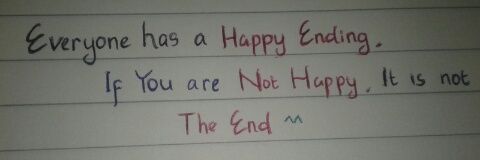 Everyone has a Happy Ending.
If You are Not Happy, It is not
The End ^^